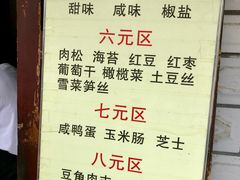 甜味 咸味 椒盐
六元区
肉松 海苔 红豆 红枣
葡萄干 橄榄菜 土豆丝
雪菜笋丝
七元区
咸鸭蛋 玉米肠 芝士
八元区
豆角肉